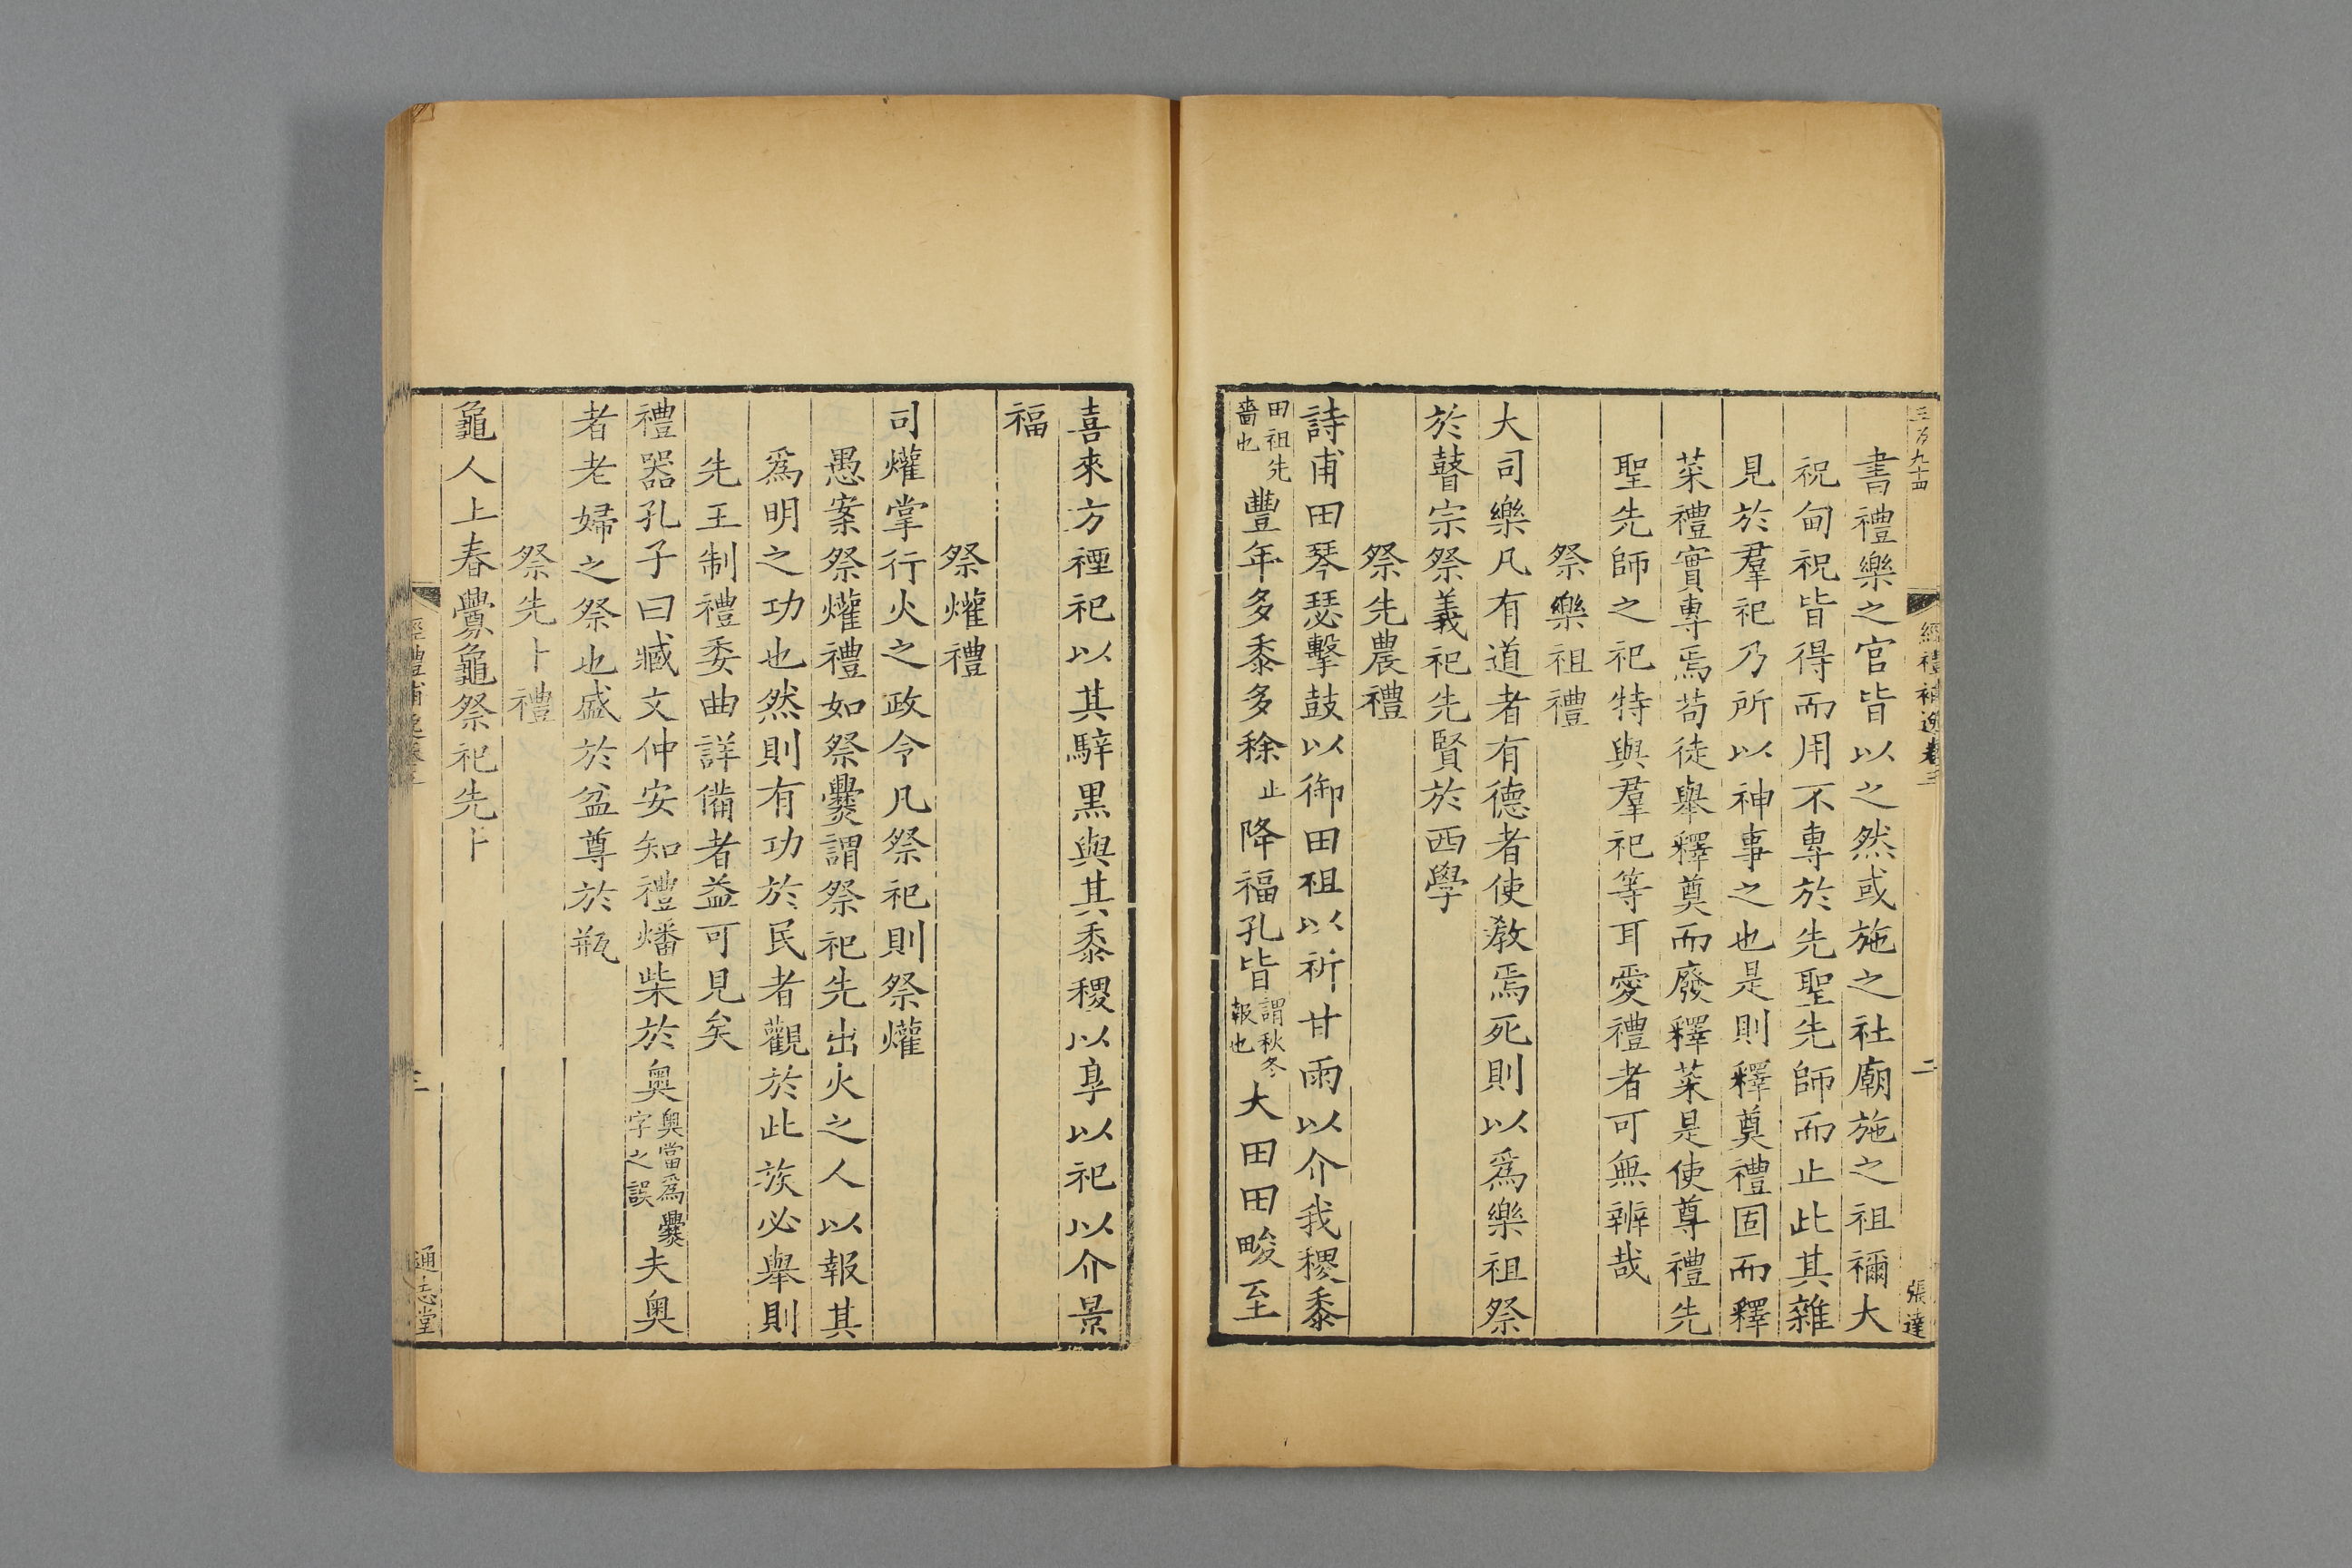 三百九十四
經禮補逸卷三
二
張達
書禮樂之官皆以之然或施之社廟施之祖禰大
祝甸祝皆得而用不專於先聖先師而止此其雜
見於羣祀乃所以神事之也是則釋奠禮固而釋
菜禮實專焉苟徒舉釋奠而廢釋菜是使尊禮先
聖先師之祀特與羣祀等耳愛禮者可無辨哉
祭樂祖禮
大司樂凡有道者有德者使教焉死則以爲樂祖祭
於瞽宗祭義祀先賢於西學
祭先農禮
詩甫田琴瑟擊鼓以御田祖以祈甘雨以介我稷黍
田祖先嗇也豐年多黍多稌止降福孔皆謂秋冬報也大田田畯至
喜來方禋祀以其騂黑與其黍稷以享以祀以介景
福
祭爟禮
司爟掌行火之政令凡祭祀則祭爟
愚案祭爟禮如祭爨謂祭祀先出火之人以報其
爲明之功也然則有功於民者觀於此族必舉則
先王制禮委曲詳備者益可見矣
禮器孔子曰臧文仲安知禮燔柴於奧奧當爲爨字之誤夫奧
者老婦之祭也盛於盆尊於瓶
祭先卜禮
龜人上春釁龜祭祀先卜
經禮補逸卷三
三
通志堂